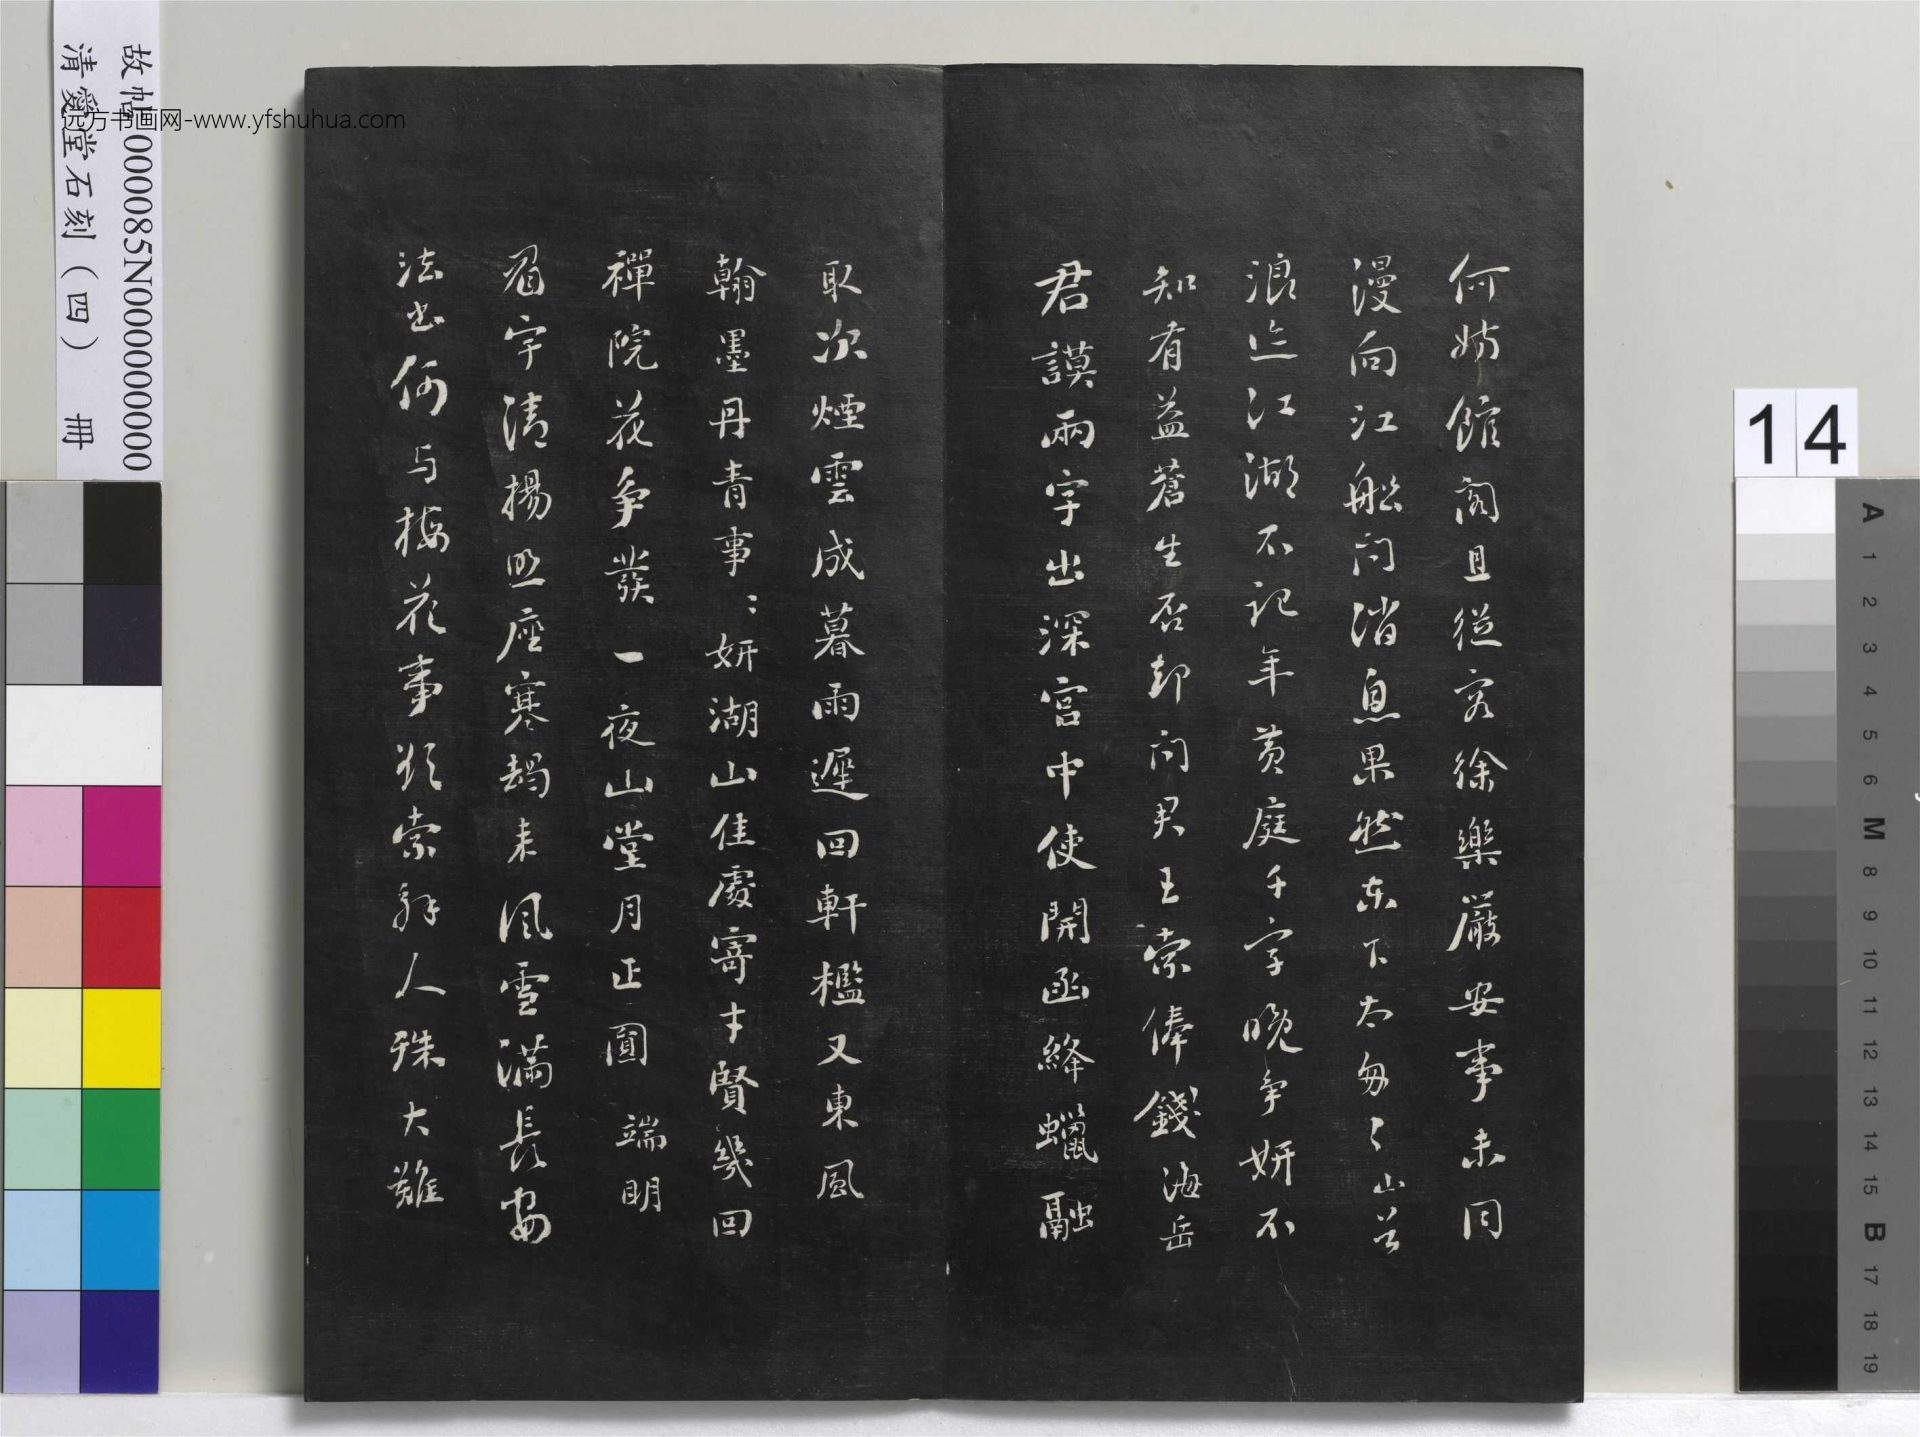 何妨館閣且從容徐樂嚴安事未同
漫向江船问消息果然东下太匆匆山谷
浪迹江湖不记年黄庭千字晚争妍不
知有益蒼生否却问君王索俸錢海岳
君謨兩字出深宫中使開函絳蠟融
取次煙雲成暮雨遲回軒檻又東風
翰墨丹青事事妍湖山佳處寄才賢幾回
禪院花争發一夜山堂月正圓端明
眉宇清揚照座寒朅来風雪滿長安
法书何与梅花事欲索解人殊大難
故帖000085N000000000
清愛堂石刻（四）冊
远方书画网-www.yfshuhua.com
14
A
1
2
3
4
5
6
M
8
9
10
11
12
13
14
15
B
17
18
19